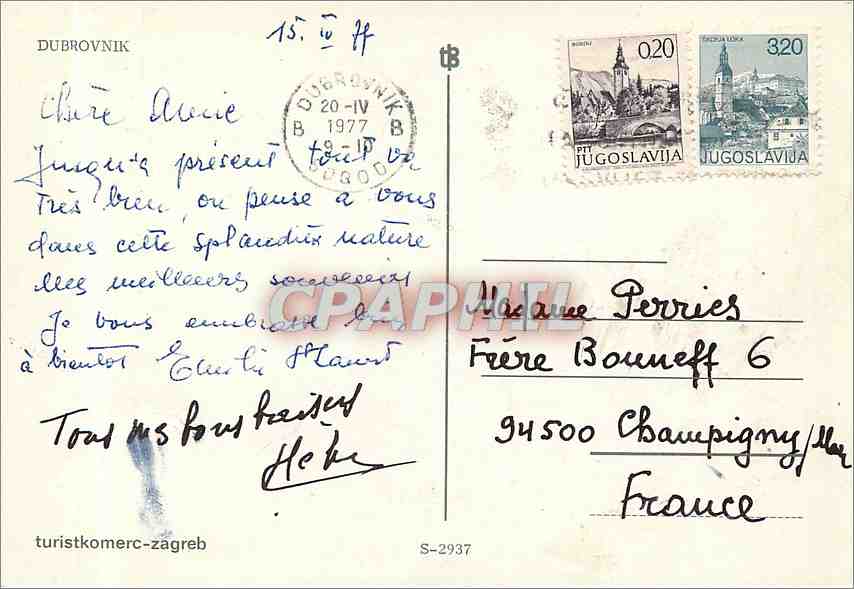 DUBROVNIK
15. IV 77
Chère Amie
Jusqu'a présent tout va
Très bien, on pense a vous
dans cette splandide nature
Mes meilleurs souvenirs
Je vous embrasse bien
à bientot
Tous mes bons baisers
turistkomerc-zagreb
S-2937
DUBROVNIK
20-IV
1977
9-10
B B
BOHINJ
0.20
PTT
JUGOSLAVIJA
ŠKOFJA LOKA
3.20
JUGOSLAVIJA
CPAPHIL
Madame Perries
Frère Bonneff 6
94500 Champigny/Mar
France